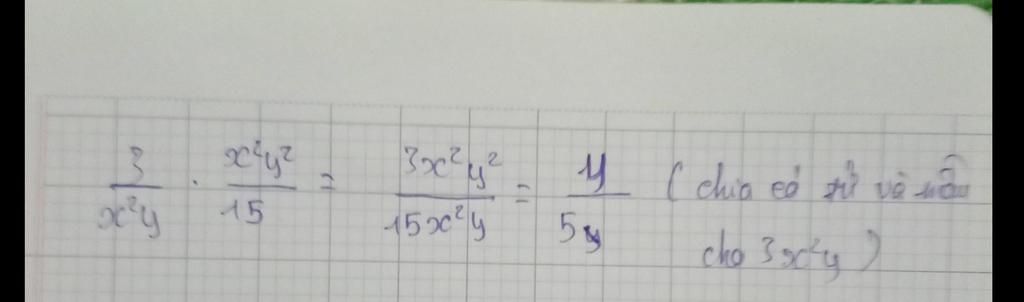 3/x²y . x²y²/15 = 3x²y²/15x²y = y/5y ( chia cả tử và mẫu
cho 3x²y )